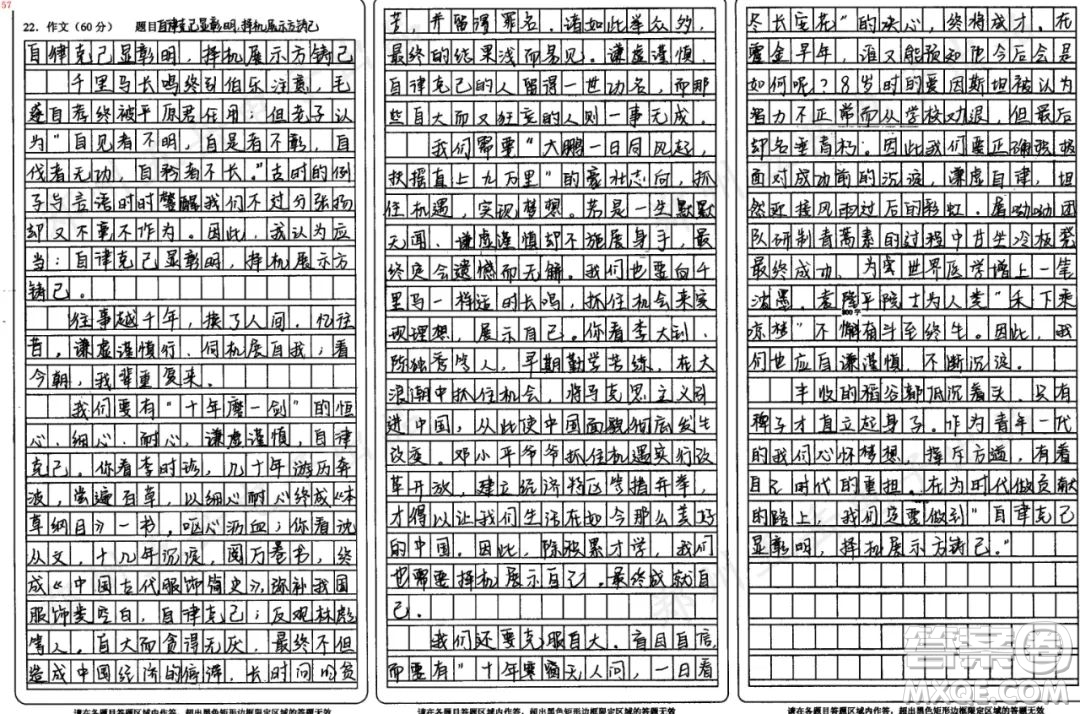 57
22. 作文(60分) 题目自律克己显彰明,择机展示方铸己
自律克己显彰明,择机展示方铸己
千里马长鸣终引伯乐注意,毛
遂自荐终被平原君任用;但老子认
为"自见者不明,自是者不彰,自
伐者无功,自矜者不长。"古时的例
子与言语时时警醒我们不过分张扬
却又不束不作为。因此,我认为应
当:自律克己显彰明,择机展示方
铸己。
往事越千年,换了人间,忆往
昔,谦虚谨慎行,伺机展自我;看
今朝,我辈重复来。
我们要有"十年磨一剑"的恒
心、细心、耐心,谦虚谨慎,自律
克己。你看李时珍,几十年游历奔
波,尝遍百草,以细心耐心终成《本
草纲目》一书,呕心沥血;你看沈
从文,十几年沉淀,阅万卷书,终
成《中国古代服饰简史》,弥补我国
服饰类空白,自律克己;反观林彪
等人,自大而贪得无厌,最终不但
造成中国经济的倒滞,长时间的贫
苦,并留得罪名。诸如此举众多,
最终的结果浅而易见。谦虚谨慎,
自律克己的人留得一世功名,而那
些自大而又狂妄的人则一事无成。
我们需要"大鹏一日同风起,
扶摇直上九万里"的豪壮志向,抓
住机遇,实现梦想。若是一生默默
无闻、谦虚谨慎却不施展身手,最
终定会遗憾而无缘。我们也要向千
里马一样适时长鸣,抓住机会来实
现理想,展示自己。你看李大钊、
陈独秀等人,早期勤学苦练,在大
浪潮中抓住机会,将马克思主义引
进中国,从此使中国面貌彻底发生
改变。邓小平爷爷抓住机遇实行改
革开放,建立经济特区等措并举,
才得以让我们生活在如今那么美好
的中国。因此,除积累才学,我们
也需要择机展示自己,最终成就自
己。
我们还要克服自大、盲目自信,
而要有"十年寒窗无人问,一日看
尽长安花"的决心,终将成才。在
霍金早年,谁又能预知他今后会是
如何呢?8岁时的爱因斯坦被认为
智力不正常而从学校劝退,但最后
却名垂青史。因此我们要正确强投
面对成功前的沉淀,谦虚自律,坦
然迎接风雨过后的彩虹。屠呦呦团
队研制青蒿素的过程中甘坐冷板凳
最终成功,为实世界医学增上一笔
浓墨,袁隆平院士为人类"禾下乘
凉梦"不懈奋斗至终生。因此,我
800字
们也应自谦谨慎,不断沉淀。
丰收的稻谷都低沉着头,只有
稗子才直立起身子。作为青年一代
的我们心怀梦想,挥斥方遒,有着
自己时代的重担。在为时代做贡献
的路上,我们定要做到"自律克己
显彰明,择机展示方铸己。"
请在各题目答题区域内作答,超出黑色矩形边框限定区域的答题无效
请在各题目答题区域内作答,超出黑色矩形边框限定区域的答题无效
请在各题目答题区域内作答,超出黑色矩形边框限定区域的答题无效
答案圈
MXQE.COM